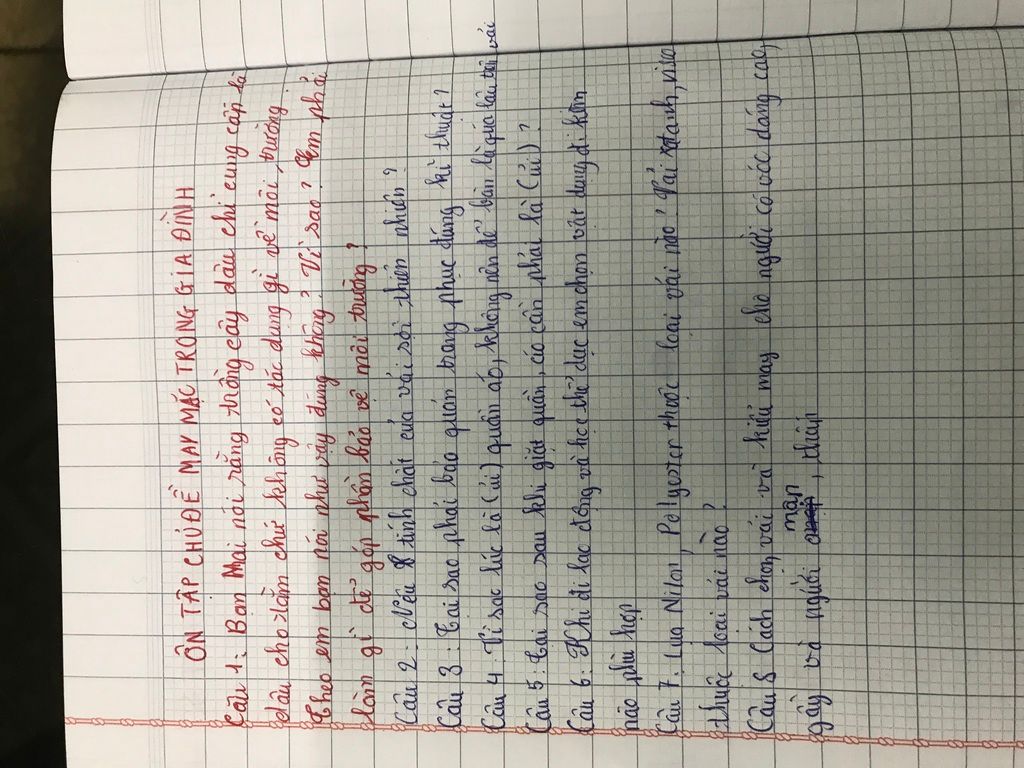 ÔN TẬP CHỦ ĐỀ MAY MẶC TRONG GIA ĐÌNH
Câu 1: Bạn Mai nói rằng trồng cây dâu chỉ cung cấp lá
dâu cho tằm chứ không có tác dụng gì về môi trường.
Theo em bạn nói như vậy đúng không? Vì sao? Em phải
làm gì để góp phần bảo vệ môi trường?
Câu 2: Nêu tính chất của vải sợi thiên nhiên?
Câu 3: Tại sao phải bảo quản trang phục đúng kĩ thuật?
Câu 4: Vì sao lúc là (ủi) quần áo, không nên để bàn là quá lâu trên vải
Câu 5: Tại sao sau khi giặt quần, áo cần phải là (ủi)?
Câu 6: Khi đi lao động và học thể dục em chọn vật dụng đi kèm
nào phù hợp
Câu 7: Lụa Nilon, Polyester thuộc loại vải nào? Vải xatanh, visco
thuộc loại vải nào?
Câu 8 Cách chọn vải và kiểu may cho người có vóc dáng cao,
gầy và người mập, thấp